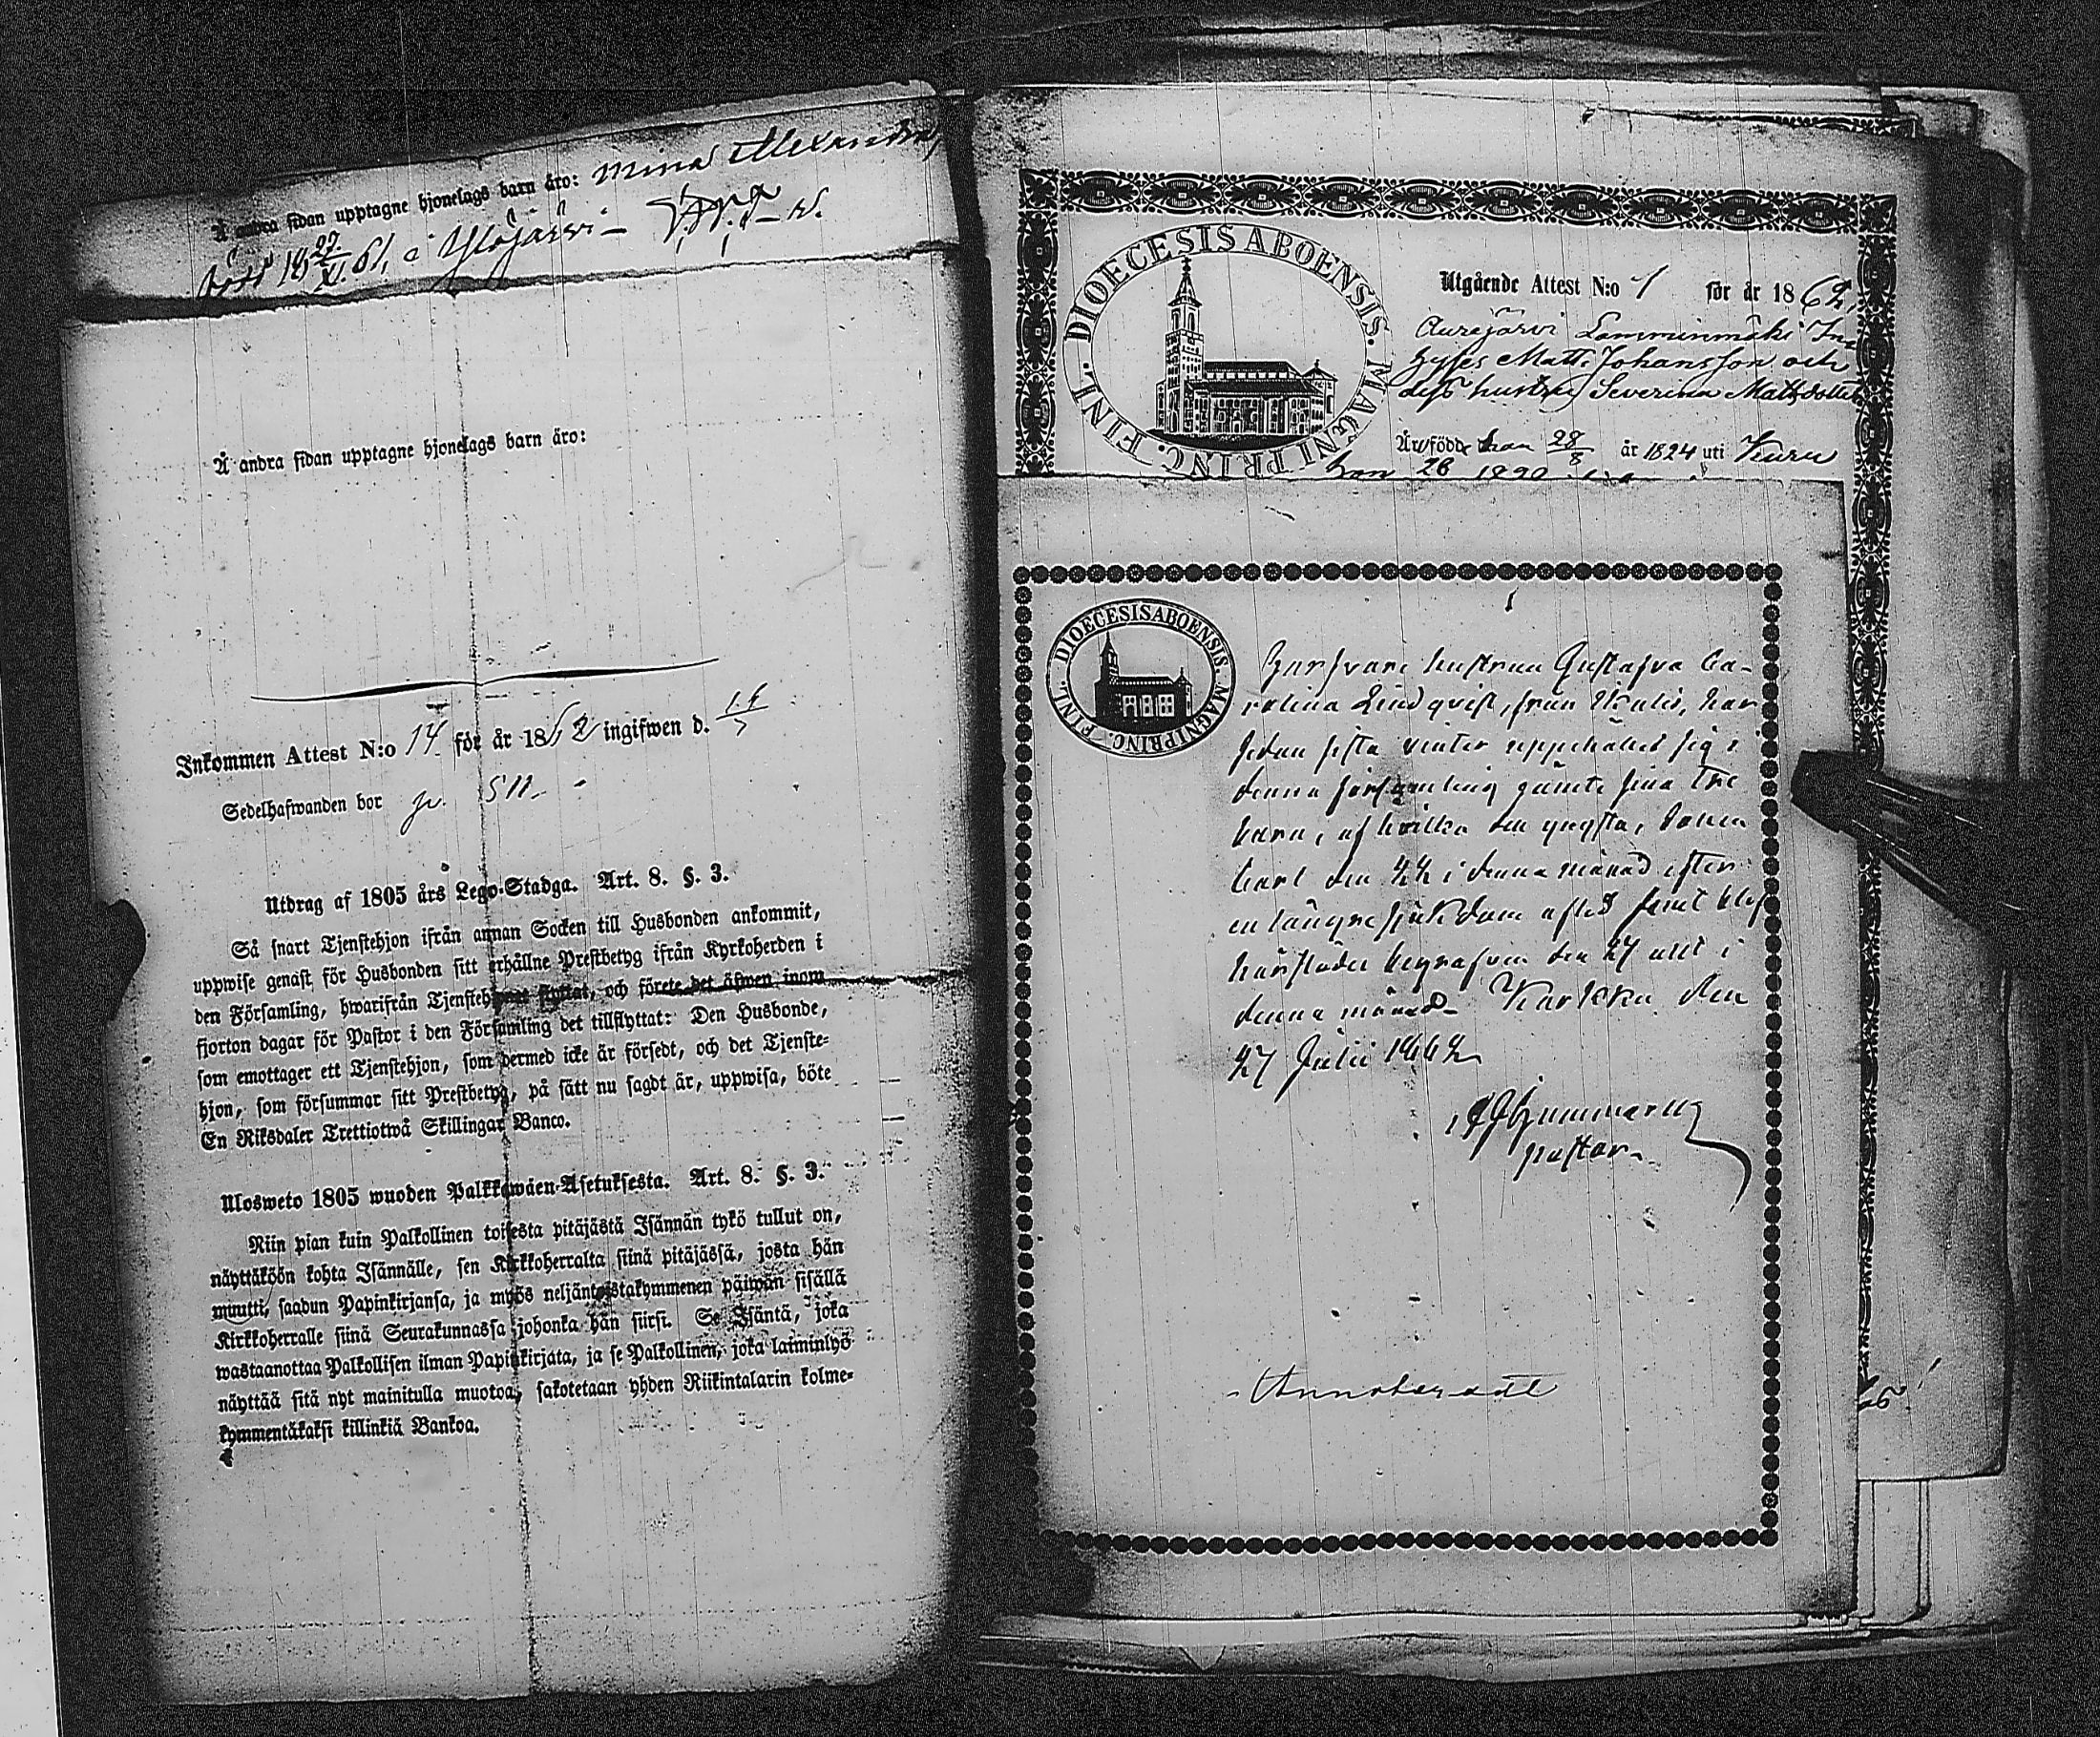 Å andra sidan upptagne hjonelags barn äro: Mina Alexandra,
född 18 27/XI. 61, i Ylöjärvi —
Å andra sidan upptagne hjonelags barn äro:
Inkommen Attest N:o 14 för år 1862 ingifwen d.
Sedelhafwanden bor
Utdrag af 1805 års Lego-Stadga. Art. 8. §. 3.
Så snart Tjenstehjon ifrån annan Socken till Husbonden ankommit,
uppwise genast för Husbonden sitt erhållne Prestbetyg ifrån Kyrkoherden i
den Församling, hwarifrån Tjenstehjonet flyttat, och förete det äfwen inom
fjorton dagar för Pastor i den Församling det tillflyttat: Den Husbonde,
som emottager ett Tjenstehjon, som dermed icke är försedt, och det Tjenste-
hjon, som försummar sitt Prestbetyg, på sätt nu sagdt är, uppwisa, böte
En Riksdaler Trettiotwå Skillingar Banco.
Ulosweto 1805 wuoden Palkkawäen-Asetuksesta. Art. 8. §. 3.
Niin pian kuin Palkollinen toisesta pitäjästä Isännän tykö tullut on,
näyttäköön kohta Isännälle, sen Kirkkoherralta siinä pitäjässä, josta hän
muutti, saadun Papinkirjansa, ja myös neljäntoistakymmenen päiwän sisällä
Kirkkoherralle siinä Seurakunnassa johonka hän siirsi. Se Isäntä, joka
wastaanottaa Palkollisen ilman Papinkirjata, ja se Palkollinen, joka laiminlyö
näyttää sitä nyt mainitulla muotoa, sakotetaan yhden Riikintalarin kolme-
kymmentäkaksi killinkiä Bankoa.
DIOECESIS ABOENSIS. MAGNI PRINC. FINL.
Utgående Attest N:o 1 för år 1862,
Aurejärvi Lamminmäki In-
hyses Matts Johansson och
dess hustru Severina Mattsdotter
Äro född han 28/8 år 1824 uti Kuru
DIOECESIS ABOENSIS. MAGNI PRINC. FINL.
Garfvare hustrun Gustafva Ca-
rolina Lindqvist, från har
sedan sista vinter uppehållit sig i
denna församling jämte sina tre
barn, af hvilka den yngsta, sonen
Carl den 22 i denna månad efter
en längre sjukdom afled samt blef
härstädes begrafven den 27 uti i
denna månad. Karkku den
27 Julii 1862
pastor.